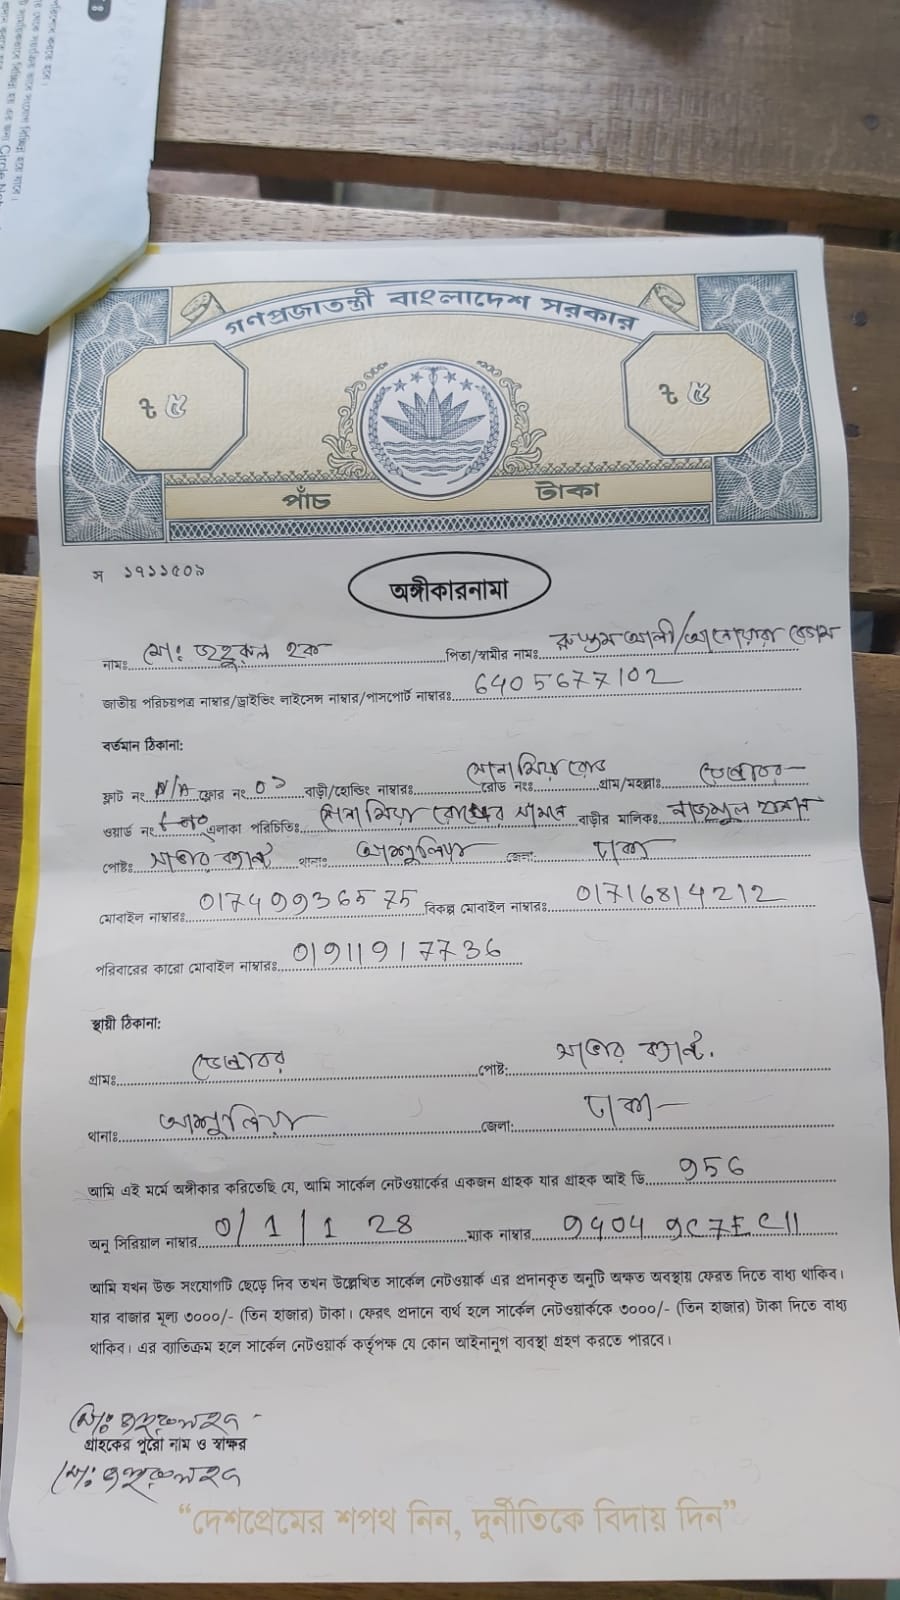 গণপ্রজাতন্ত্রী বাংলাদেশ সরকার
৳ ৫
৳ ৫
পাঁচ টাকা
স ১৭১১৫০৯
অঙ্গীকারনামা
নামঃ মোঃ জহুরুল হক পিতা/স্বামীর নামঃ রুস্তম আলী/আনোয়ারা বেগম
জাতীয় পরিচয়পত্র নাম্বার/ড্রাইভিং লাইসেন্স নাম্বার/পাসপোর্ট নাম্বারঃ 6405677102
বর্তমান ঠিকানা:
ফ্লাট নং N/A ফ্লোর নং 0১ বাড়ী/হোল্ডিং নাম্বারঃ সোনা মিয়া রোড রোড নংঃ গ্রাম/মহল্লাঃ
ওয়ার্ড নং এলাকা পরিচিতিঃ সোনা মিয়া রোডের সামনে বাড়ীর মালিকঃ নাজমুল হাসান
পোষ্টঃ সাভার ক্যান্ট থানাঃ আশুলিয়া জেলা: ঢাকা
মোবাইল নাম্বারঃ 01749936575 বিকল্প মোবাইল নাম্বারঃ 01716814212
পরিবারের কারো মোবাইল নাম্বারঃ 01911917736
স্থায়ী ঠিকানা:
গ্রামঃ পোষ্ট: সাভার ক্যান্ট.
থানাঃ আশুলিয়া জেলা: ঢাকা
আমি এই মর্মে অঙ্গীকার করিতেছি যে, আমি সার্কেল নেটওয়ার্কের একজন গ্রাহক যার গ্রাহক আই ডি 956
অনু সিরিয়াল নাম্বার 0/1/1 28 ম্যাক নাম্বার 9404 9C7E C11
আমি যখন উক্ত সংযোগটি ছেড়ে দিব তখন উল্লেখিত সার্কেল নেটওয়ার্ক এর প্রদানকৃত অনুটি অক্ষত অবস্থায় ফেরত দিতে বাধ্য থাকিব।
যার বাজার মূল্য ৩০০০/- (তিন হাজার) টাকা। ফেরৎ প্রদানে ব্যর্থ হলে সার্কেল নেটওয়ার্ককে ৩০০০/- (তিন হাজার) টাকা দিতে বাধ্য
থাকিব। এর ব্যতিক্রম হলে সার্কেল নেটওয়ার্ক কর্তৃপক্ষ যে কোন আইনানুগ ব্যবস্থা গ্রহণ করতে পারবে।
মোঃ জহুরুল হক
গ্রাহকের পুরো নাম ও স্বাক্ষর
মোঃ জহুরুল হক
“দেশপ্রেমের শপথ নিন, দুর্নীতিকে বিদায় দিন”